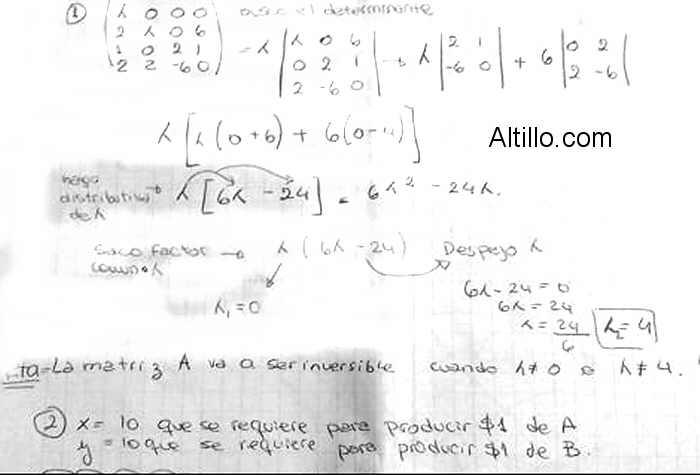 ① (λ 0 0 0 el determinante
2 λ 0 6
1 0 2 1
2 2 -6 0) = λ |λ 0 6
0 2 1
2 -6 0| → λ |2 1
-6 0| + 6 |0 2
2 -6|
λ [λ (0+6) + 6(0-4)]
Altillo.com
hago distributiva de λ → λ [6λ - 24] = 6λ² - 24λ.
Saco factor comun λ → λ (6λ - 24) Despejo λ
λ₁ = 0
6λ - 24 = 0
6λ = 24
λ = 24/6 λ₂ = 4
ta - La matriz A va a ser inversible cuando λ ≠ 0 o λ ≠ 4.
② x = lo que se requiere para producir $1 de A
y = lo que se requiere para producir $1 de B.